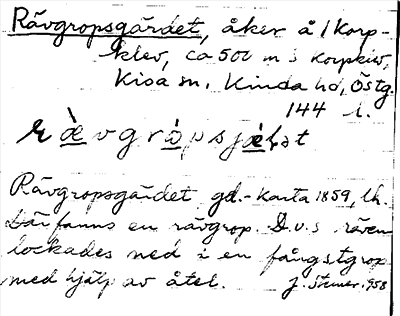 Rävgropsgärdet, åker å 1 Korp-
klev, ca 500 m s Korpklev,
Kisa sn, Kinda hd, Östg.
144 l.
rævgròpsjæḷət
Rävgropsgärdet gd.-karta 1859, lh.
Där fanns en rävgrop. D.v.s räven
lockades ned i en fångstgrop
med hjälp av åtel. J. Stener. 1958